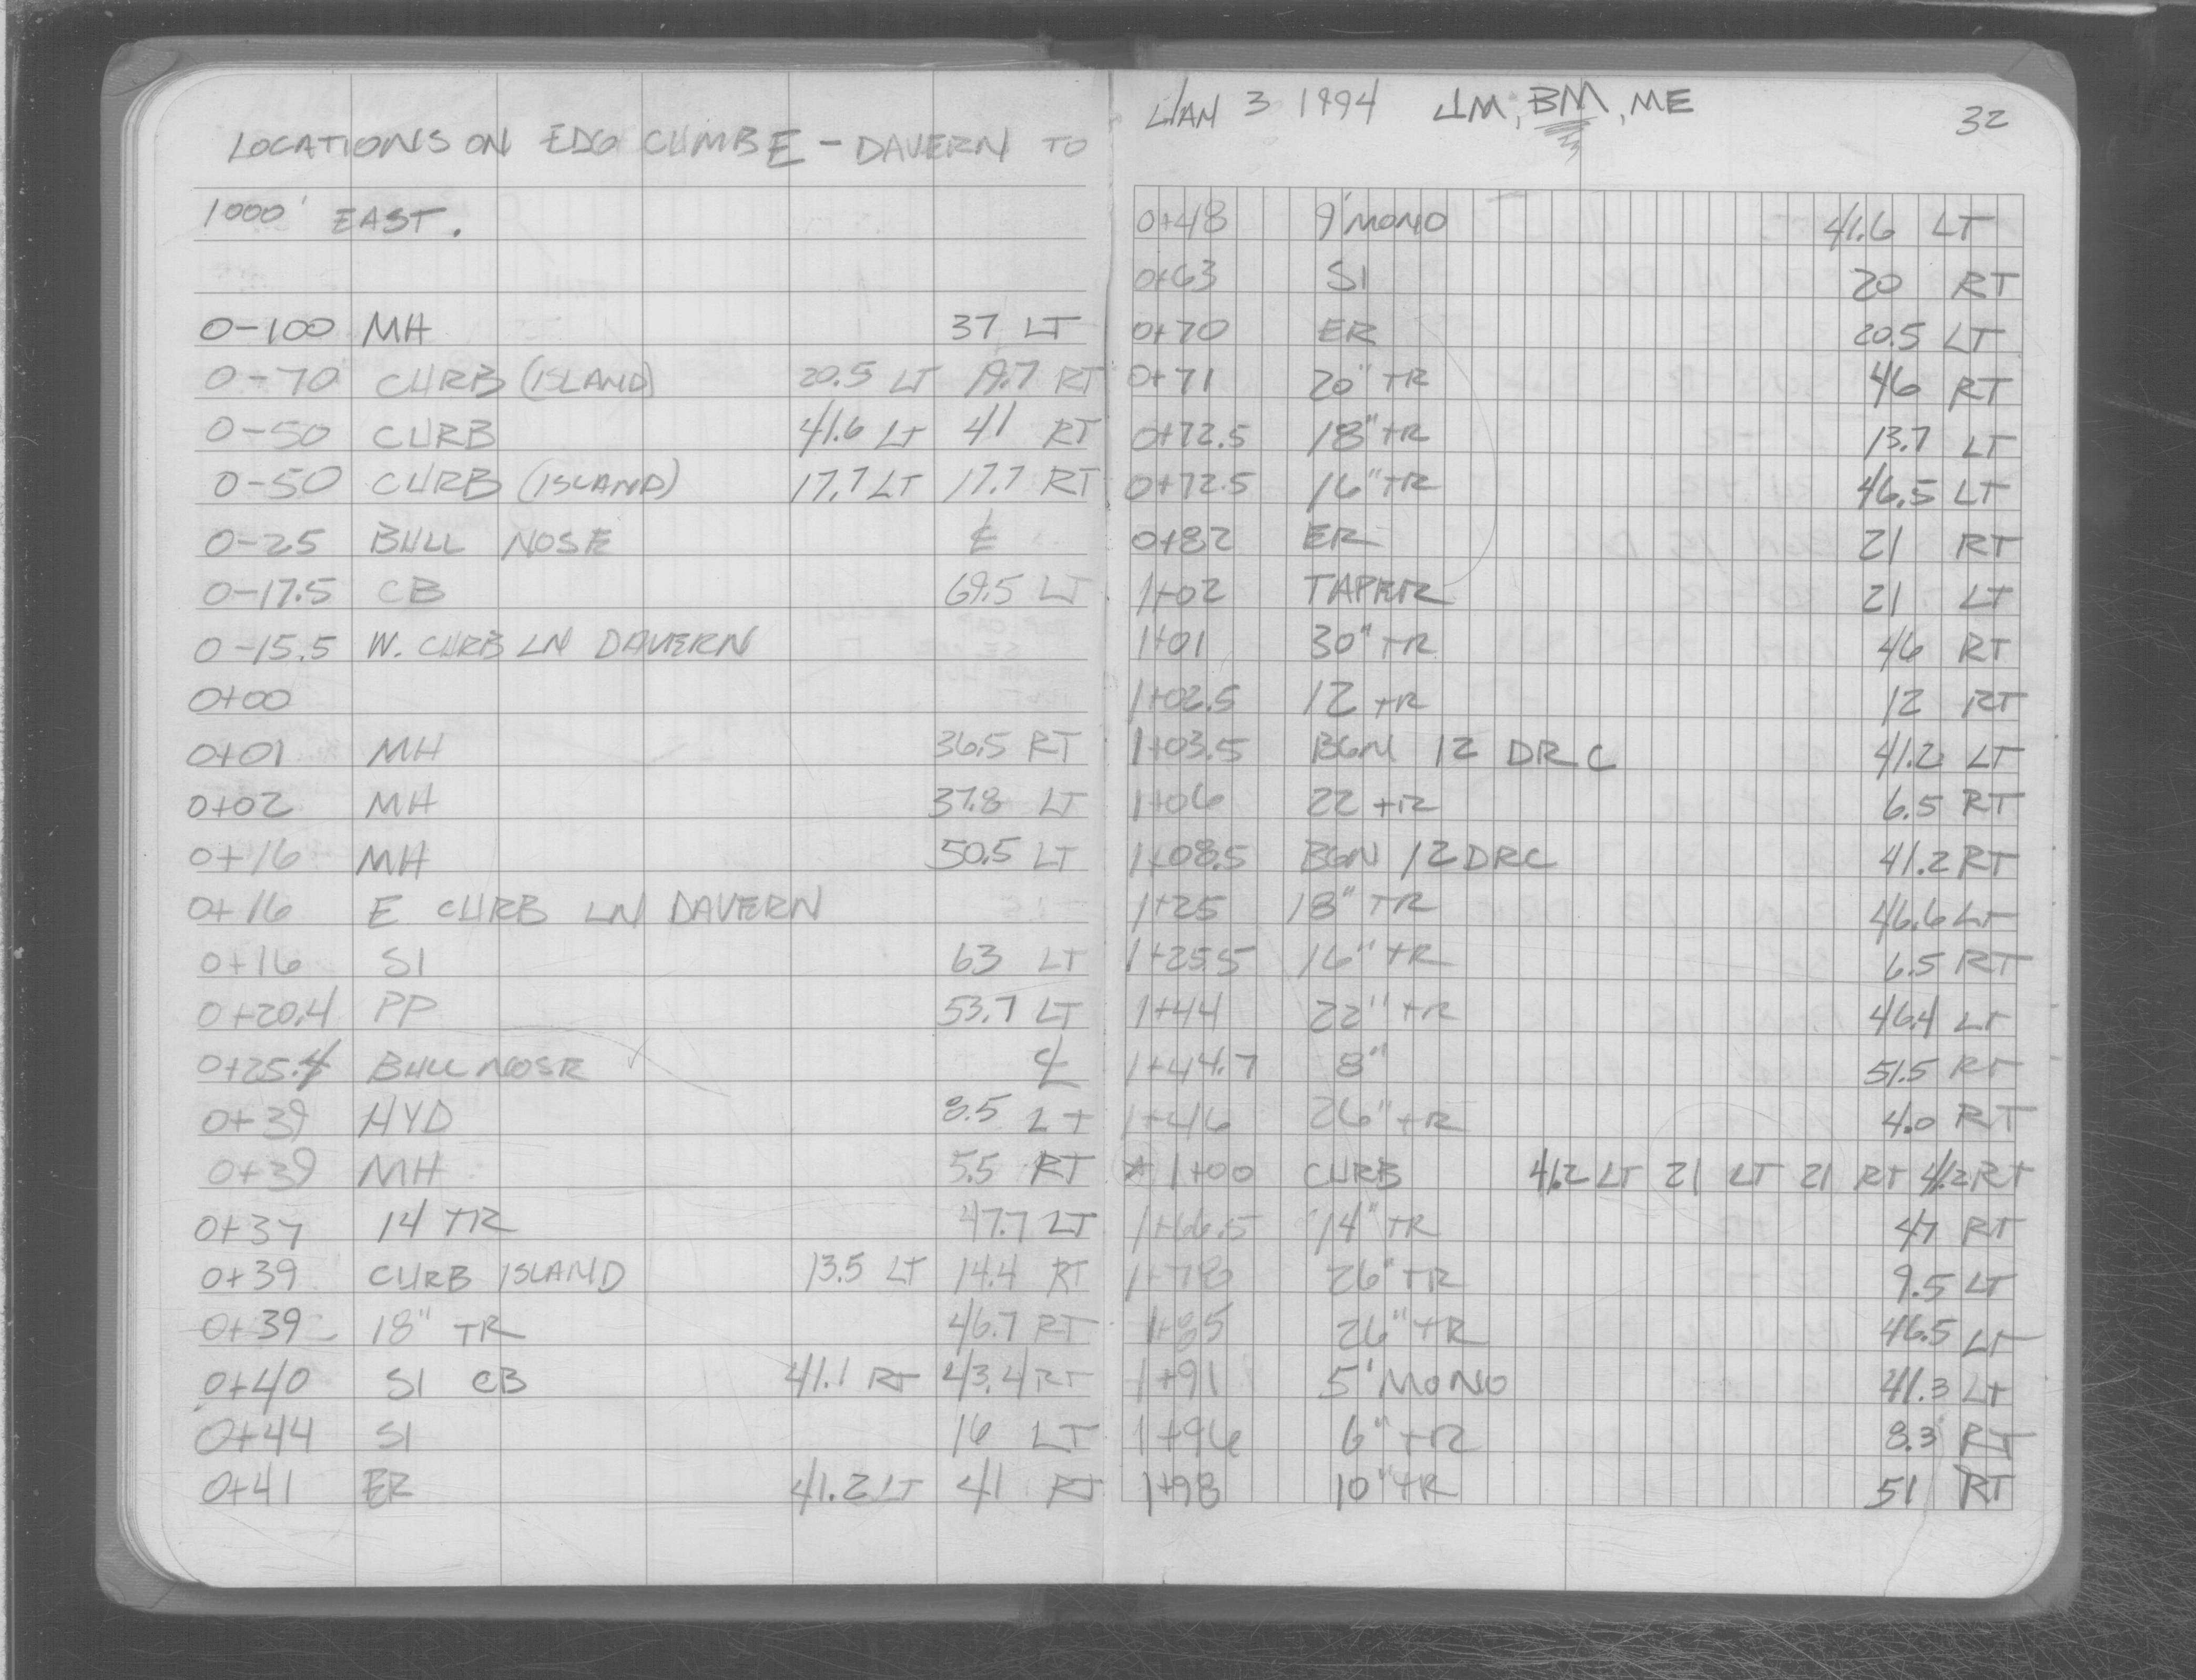 LOCATIONS ON EDG CUMBE - DAVERN TO
1000' EAST.
0-100 MH 37 LT
0-70 CURB (ISLAND) 20.5 LT 19.7 RT
0-50 CURB 41.6 LT 41 RT
0-50 CURB (ISLAND) 17.7 LT 17.7 RT
0-25 BULL NOSE ℄
0-17.5 CB 69.5 LT
0-15.5 W. CURB LN DAVERN
0+00
0+01 MH 36.5 RT
0+02 MH 37.8 LT
0+16 MH 50.5 LT
0+16 E CURB LN DAVERN
0+16 SI 63 LT
0+20.4 PP 53.7 LT
0+25.4 BULL NOSE ℄
0+39 HYD 8.5 LT
0+39 MH 5.5 RT
0+37 14 TR 47.7 LT
0+39 CURB ISLAND 13.5 LT 14.4 RT
0+39 18" TR 46.7 RT
0+40 SI CB 41.1 RT 43.4 RT
0+44 SI 16 LT
0+41 ER 41.2 LT 41 RT
JAN 3 1994 JM, BM, ME 32
0+48 9' MONO 41.6 LT
0+63 SI 20 RT
0+70 ER 20.5 LT
0+71 20" TR 46 RT
0+72.5 18" TR 13.7 LT
0+72.5 16" TR 46.5 LT
0+82 ER 21 RT
1+02 TAPER 21 LT
1+01 30" TR 46 RT
1+02.5 12 TR 12 RT
1+03.5 BGN 12 DRC 41.2 LT
1+06 22 TR 6.5 RT
1+08.5 BGN 12 DRC 41.2 RT
1+25 18" TR 46.6 LT
1+25.5 16" TR 6.5 RT
1+44 22" TR 46.4 LT
1+44.7 8" 51.5 RT
1+46 26" TR 4.0 RT
* 1+00 CURB 41.2 LT 21 LT 21 RT 41.2 RT
1+66.5 14" TR 47 RT
1+78 26" TR 9.5 LT
1+85 26" TR 46.5 LT
1+91 5' MONO 41.3 LT
1+96 6" TR 8.3 RT
1+98 10" TR 51 RT